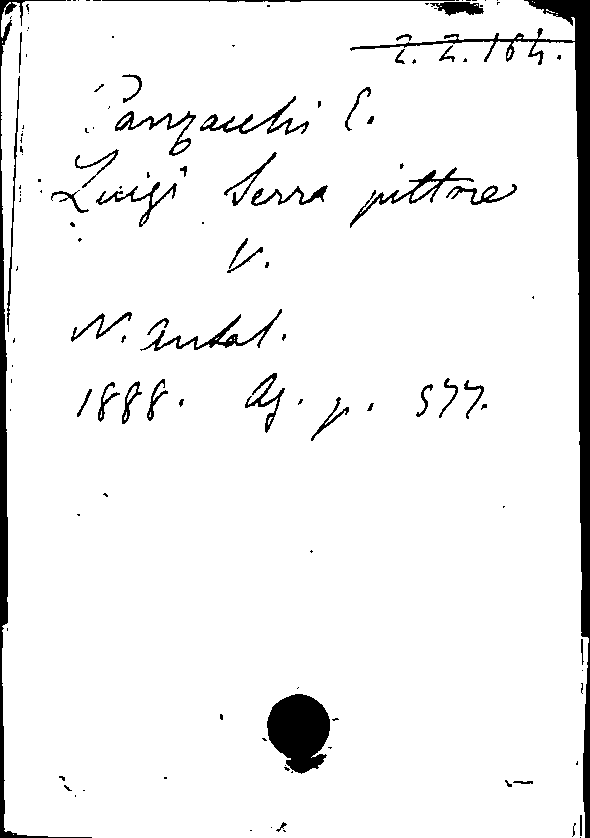 2. 2. 164.
Panzacchi E.
Luigi Serra pittore
V.
N. Antol.
1888. Ag. p. 577.